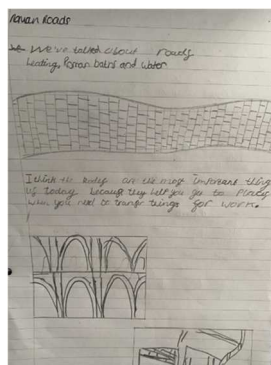 Roman Roads
We've talked about roads
heating, Roman baths and water
I think the roads are the most important thing
us today because they help you get to places
when you need to transfe things for work.